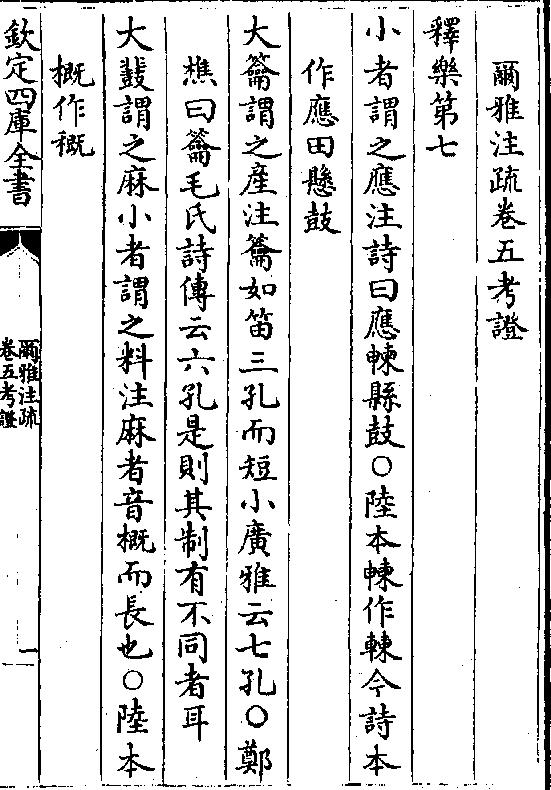 爾雅注疏卷五考證
釋樂第七
小者謂之應注詩曰應朄縣鼓○陸本朄作𣌾今詩本
作應田懸鼓
大籥謂之産注籥如笛三孔而短小廣雅云七孔○鄭
樵曰籥毛氏詩傳云六孔是則其制有不同者耳
大鼗謂之麻小者謂之料注麻者音概而長也○陸本
概作穊
欽定四庫全書
爾雅注疏
卷五考證
一